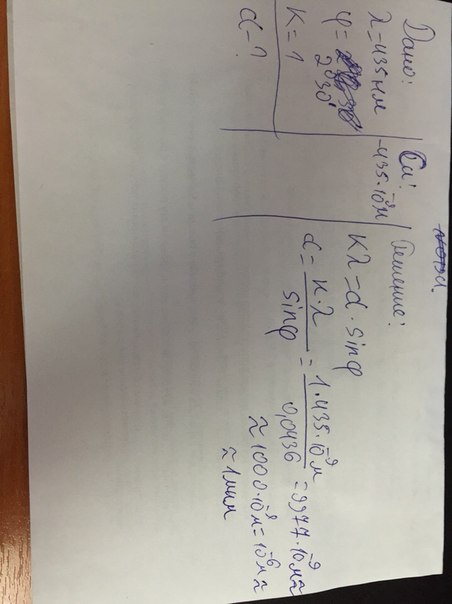 Дано:
λ=435нм
φ= 2°30'
k=1
d-?
Си:
435·10⁻⁹м
Решение:
kλ=d·sinφ
d= k·λ / sinφ = 1·435·10⁻⁹м / 0,0436 = 9977·10⁻⁹м≈
≈1000·10⁻⁹м=10⁻⁶м≈
≈1мкм